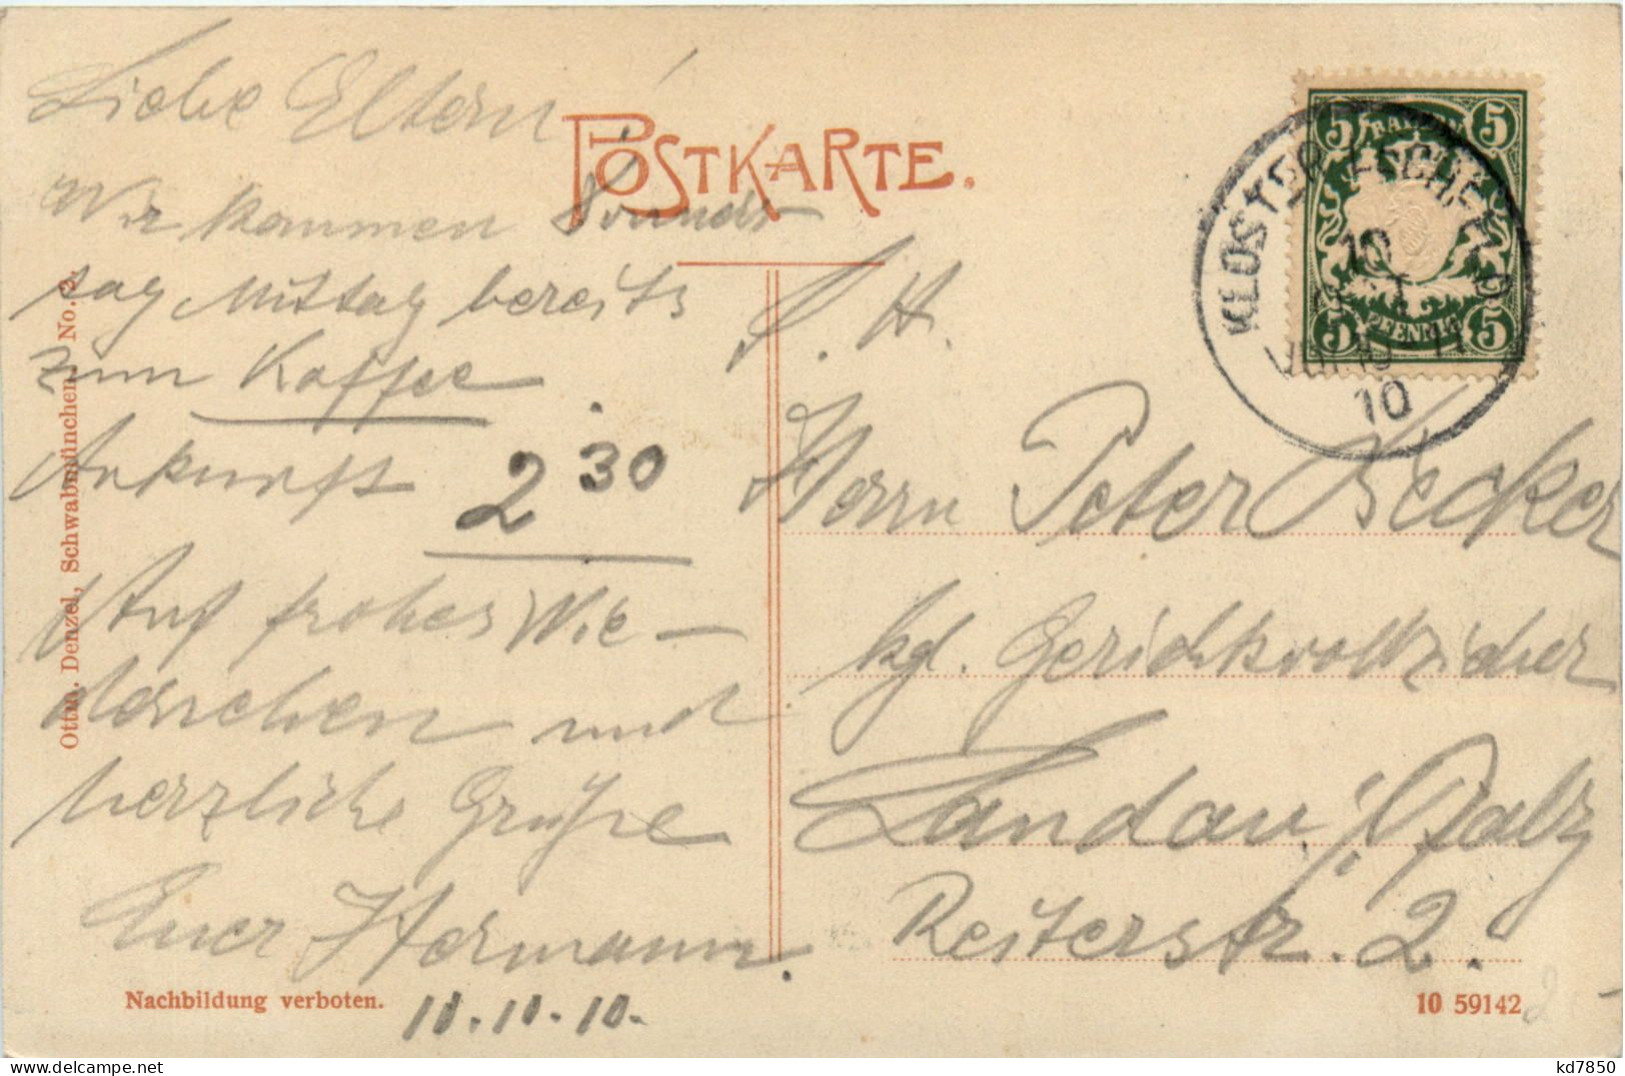 POSTKARTE.
Liebe Eltern!
Wir kommen Donners-
tag Mittag bereits
zum Kaffee
Ankunft 2 30
Auf frohes Wie-
dersehen und
herzliche Grüße
Euer Hermann.
10.
Nachbildung verboten.
Otto. Denzel, Schwabmünchen. No. 2.
BAYERN
5 5
PFENNIG
5 5
KLOSTER
10
10
S. H.
Herrn Peter Becker
kgl. Gerichtsvollzieher
Landau i/Pfalz
Reiterstr. 2.
10 59142
kd7850